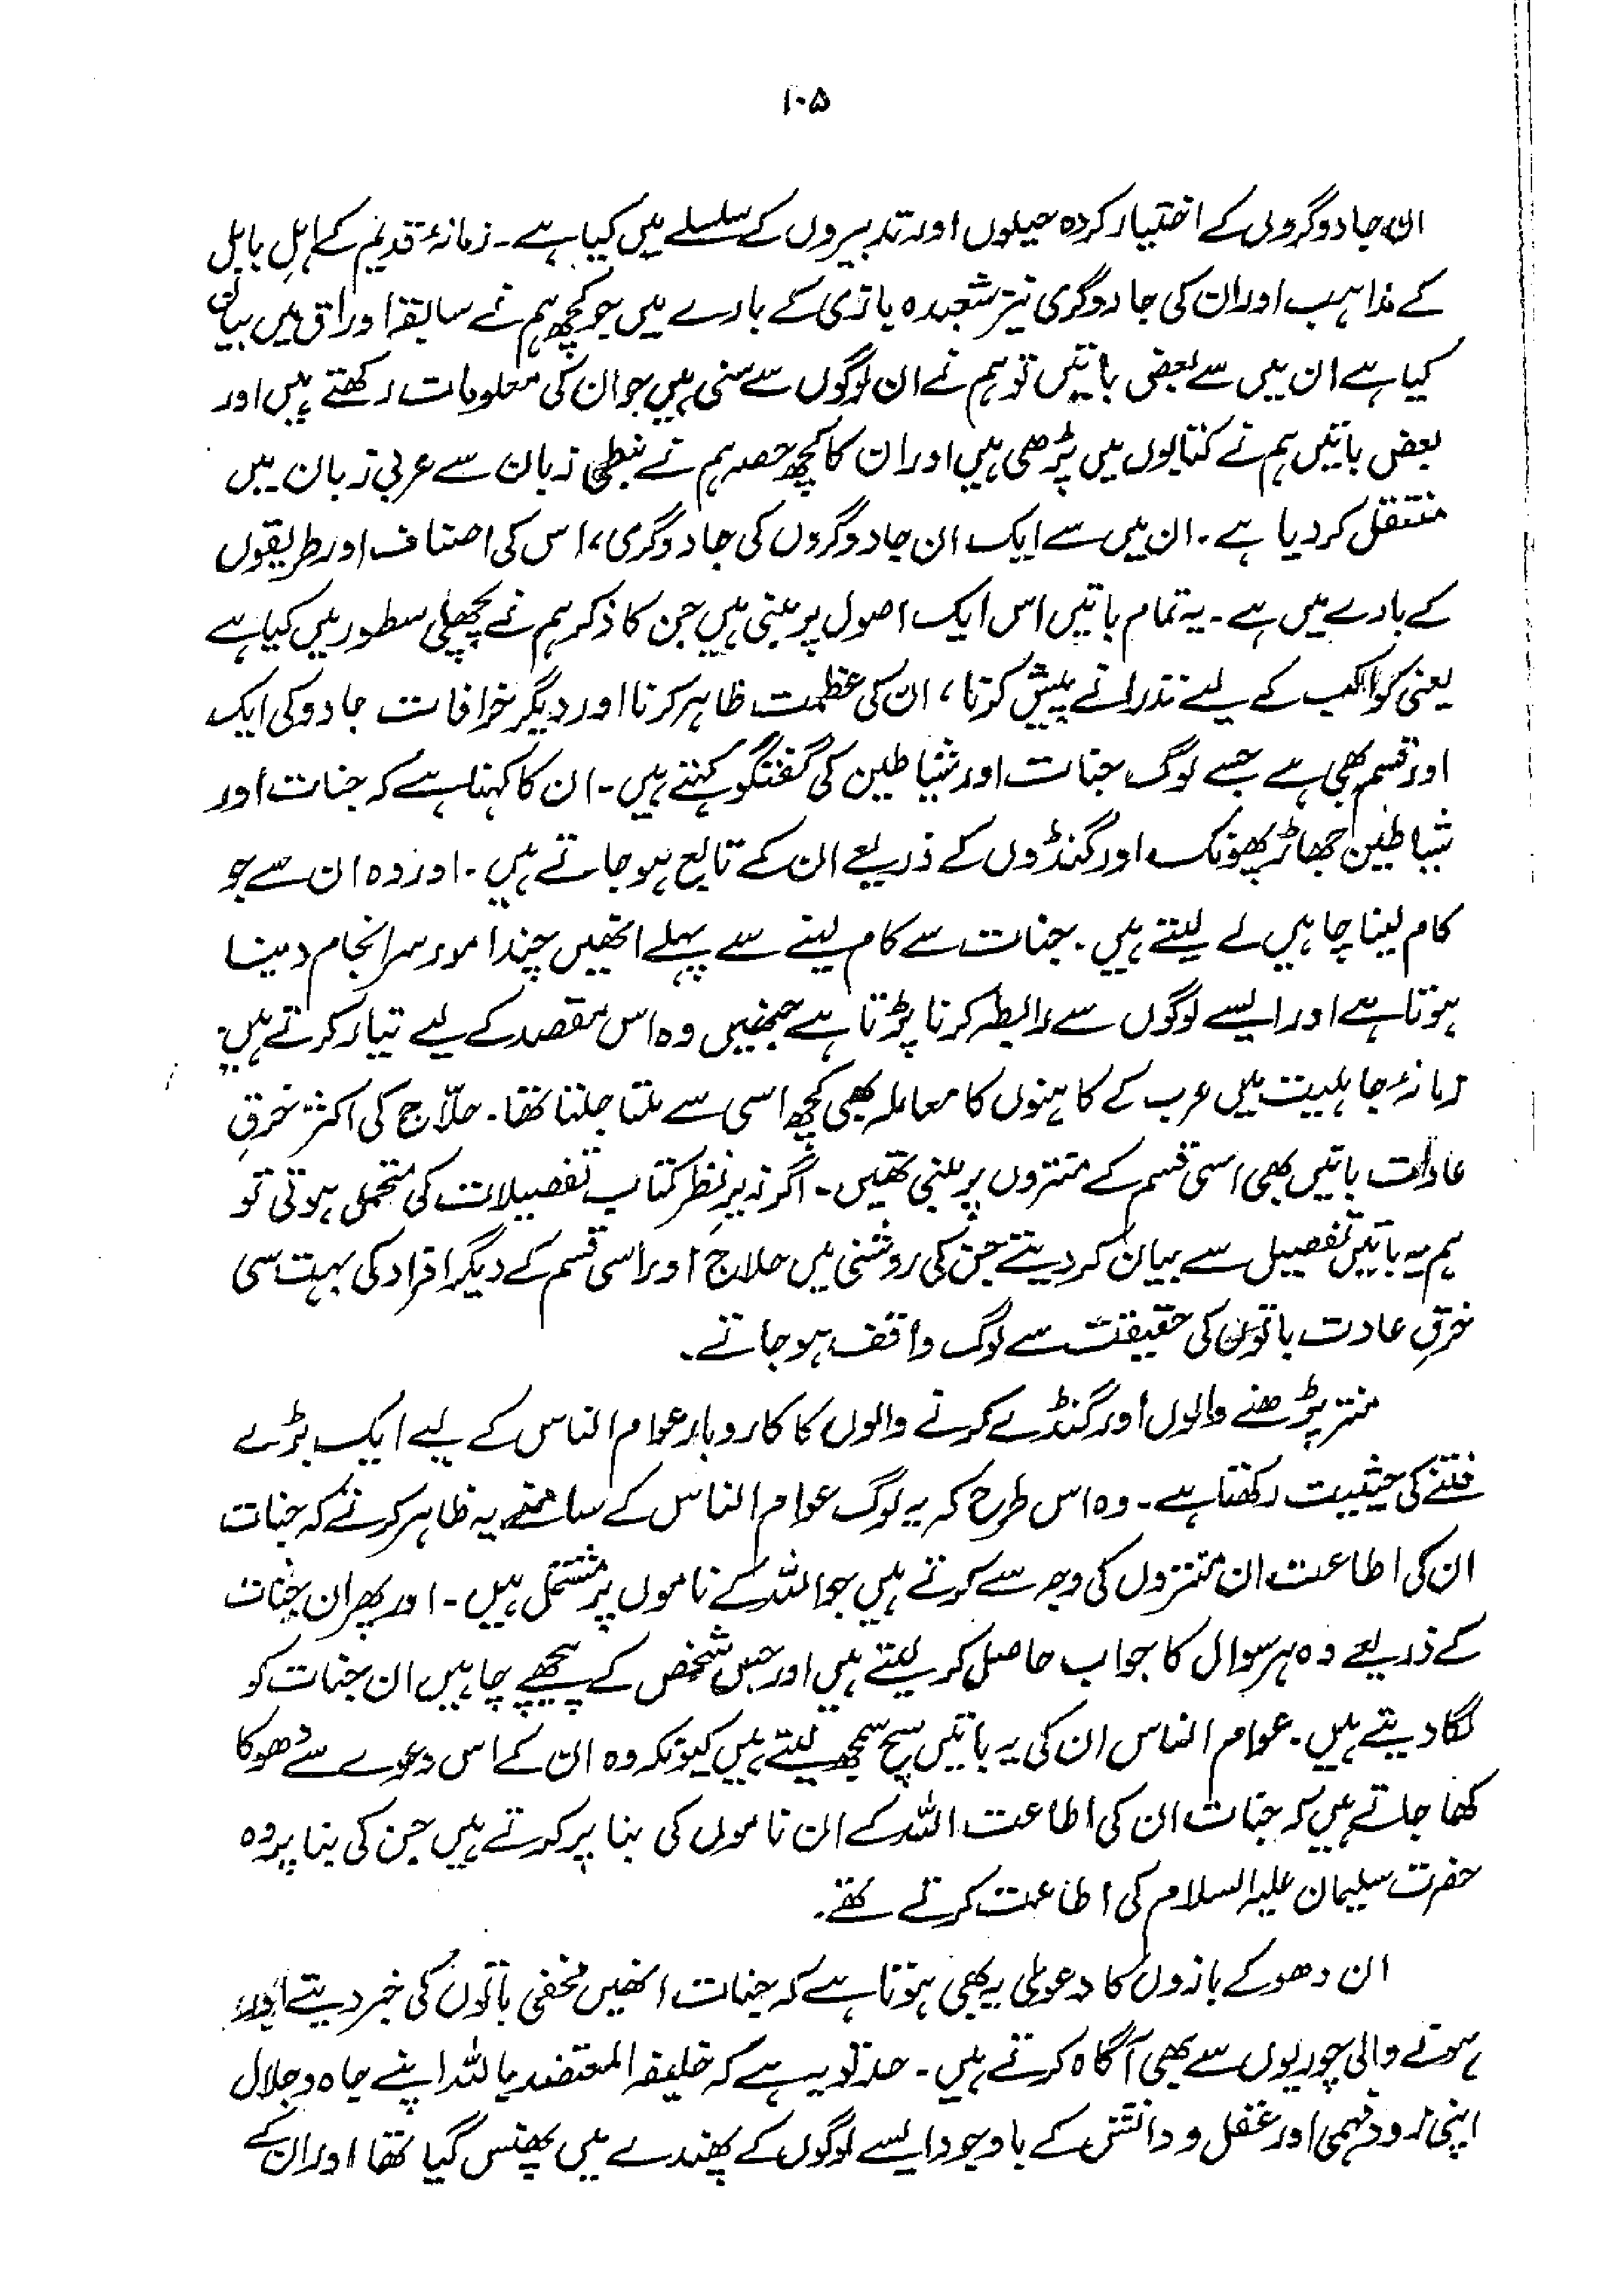 ۱۰۵
ان جادوگروں کے اختیار کردہ حیلوں اور تدبیروں کے سلسلے میں کیا ہے ۔ زمانۂ قدیم کے اہلِ بابل
کے مذاہب اور ان کی جادوگری نیز شعبدہ بازی کے بارے میں جو کچھ ہم نے سابقہ اوراق میں بیان
کیا ہے ان میں سے بعض باتیں تو ہم نے ان لوگوں سے سنی ہیں جو ان کی معلومات رکھتے ہیں اور
بعض باتیں ہم نے کتابوں میں پڑھی ہیں اور ان کا کچھ حصہ ہم نے نبطی زبان سے عربی زبان میں
منتقل کر دیا ہے ۔ ان میں سے ایک ان جادوگروں کی جادوگری، اس کی اصناف اور طریقوں
کے بارے میں ہے ۔ یہ تمام باتیں اس ایک اصول پر مبنی ہیں جن کا ذکر ہم نے پچھلی سطور میں کیا ہے
یعنی کواکب کے لیے نذرانے پیش کرنا، ان کی عظمت ظاہر کرنا اور دیگر خرافات جادو کی ایک
اور قسم بھی ہے جسے لوگ جنات اور شیاطین کی گفتگو کہتے ہیں ۔ ان کا کہنا ہے کہ جنات اور
شیاطین جھاڑ پھونک اور گنڈوں کے ذریعے ان کے تابع ہو جاتے ہیں ۔ اور وہ ان سے جو
کام لینا چاہیں لے لیتے ہیں ۔ جنات سے کام لینے سے پہلے انھیں چند امور سرانجام دینا
ہوتا ہے اور ایسے لوگوں سے رابطہ کرنا پڑتا ہے جنھیں وہ اس مقصد کے لیے تیار کرتے ہیں ۔
زمانۂ جاہلیت میں عرب کے کاہنوں کا معاملہ بھی کچھ اسی سے ملتا جلتا تھا ۔ حلّاج کی اکثر خرقِ
عادات باتیں بھی اسی قسم کے منتروں پر مبنی تھیں ۔ اگر زیرِ نظر کتاب تفصیلات کی متحمل ہوتی تو
ہم یہ باتیں تفصیل سے بیان کر دیتے جن کی روشنی میں حلاج اور اسی قسم کے دیگر افراد کی بہت سی
خرقِ عادت باتوں کی حقیقت سے لوگ واقف ہو جاتے ۔
منتر پڑھنے والوں اور گنڈے کرنے والوں کا کاروبار عوام الناس کے لیے ایک بڑے
فتنے کی حیثیت رکھتا ہے ۔ وہ اس طرح کہ یہ لوگ عوام الناس کے سامنے یہ ظاہر کرتے کہ جنات
ان کی اطاعت ان منتروں کی وجہ سے کرتے ہیں جو اللہ کے ناموں پر مشتمل ہیں ۔ اور پھر ان جنات
کے ذریعے وہ ہر سوال کا جواب حاصل کر لیتے ہیں اور جس شخص کے پیچھے چاہیں ان جنات کو
لگا دیتے ہیں ۔ عوام الناس ان کی یہ باتیں سچ سمجھ لیتے ہیں کیونکہ وہ ان کے اس دعوے سے دھوکا
کھا جاتے ہیں کہ جنات ان کی اطاعت اللہ کے ان ناموں کی بنا پر کرتے ہیں جن کی بنا پر وہ
حضرت سلیمان علیہ السلام کی اطاعت کرتے تھے ۔
ان دھوکے بازوں کا دعویٰ یہ بھی ہوتا ہے کہ جنات انھیں مخفی باتوں کی خبر دیتے اور
ہونے والی چوریوں سے بھی آگاہ کرتے ہیں ۔ حد تو یہ ہے کہ خلیفہ المعتضد باللہ اپنے جاہ و جلال
اپنی زود فہمی اور عقل و دانش کے باوجود ایسے لوگوں کے پھندے میں پھنس گیا تھا اور ان کے